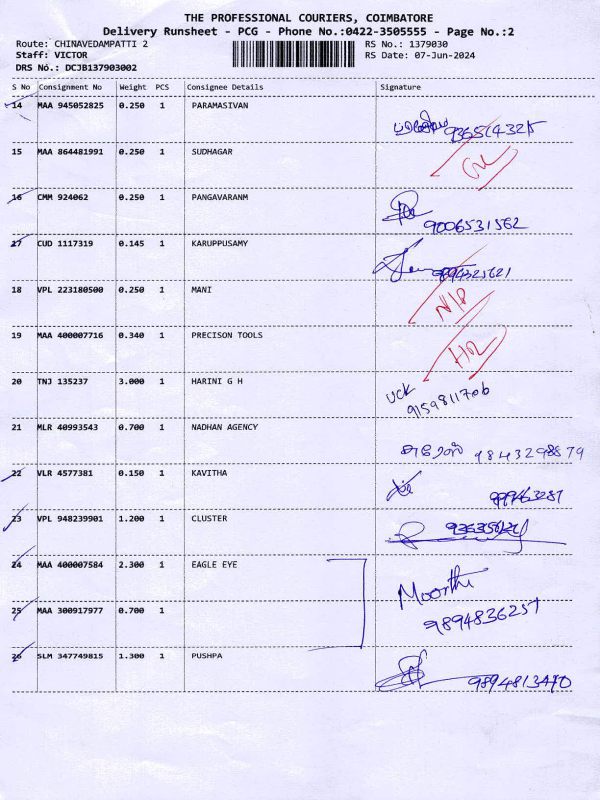 THE PROFESSIONAL COURIERS, COIMBATORE
Delivery Runsheet - PCG - Phone No.:0422-3505555 - Page No.:2
Route: CHINAVEDAMPATTI 2 RS No.: 1379030
Staff: VICTOR RS Date: 07-Jun-2024
DRS No.: DCJB137903002
S No Consignment No Weight PCS Consignee Details Signature
14 MAA 945052825 0.250 1 PARAMASIVAN
15 MAA 864481991 0.250 1 SUDHAGAR
16 CMM 924062 0.250 1 PANGAVARANM
9006531562
17 CUD 1117319 0.145 1 KARUPPUSAMY
9894325621
18 VPL 223180500 0.250 1 MANI
19 MAA 400007716 0.340 1 PRECISON TOOLS
20 TNJ 135237 3.000 1 HARINI G H
UCK
9159811706
21 MLR 40993543 0.700 1 NADHAN AGENCY
9843298879
22 VLR 4577381 0.150 1 KAVITHA
23 VPL 948239901 1.200 1 CLUSTER
24 MAA 400007584 2.300 1 EAGLE EYE
Moorthi
9894836257
25 MAA 300917977 0.700 1
26 SLM 347749815 1.300 1 PUSHPA
9894813470